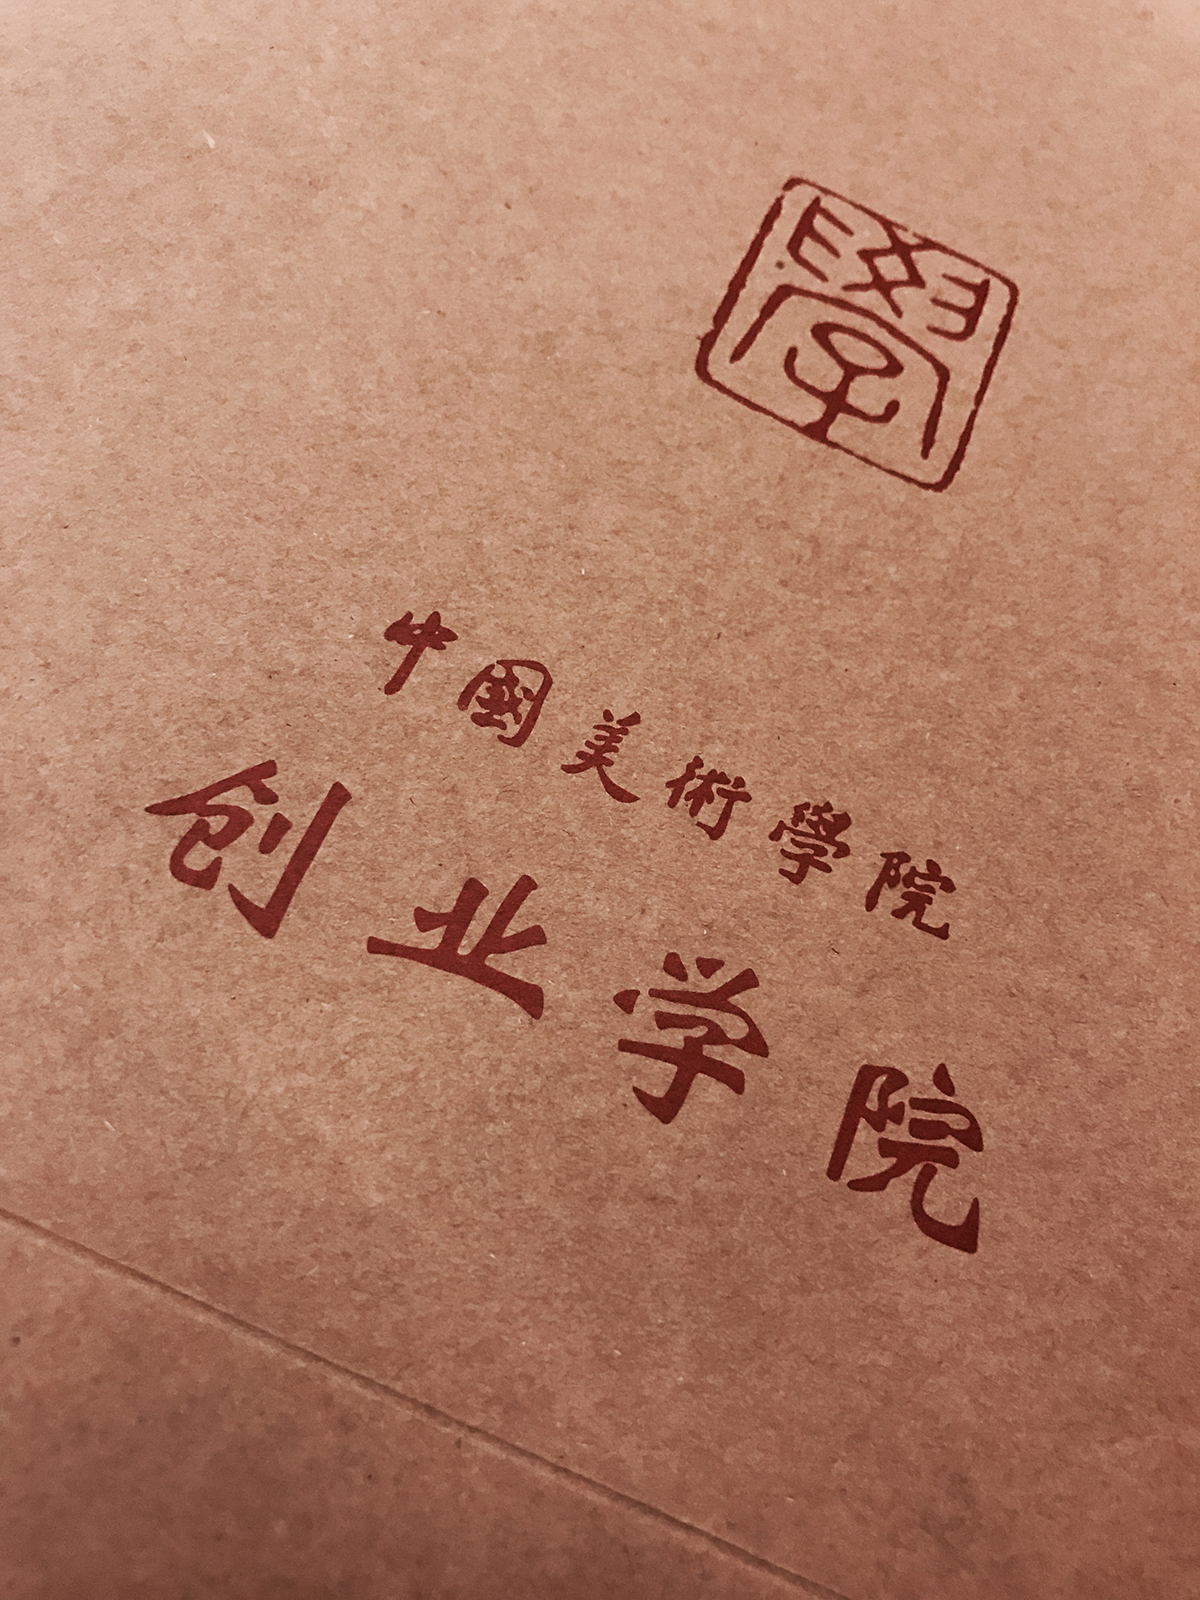 學
中國美術學院
创业学院